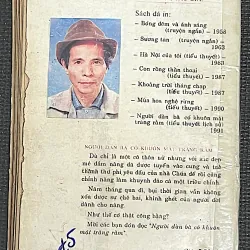 Sách đã in:
- Bóng đêm và ánh sáng
(truyện ngắn) — 1958
- Sương tan (truyện ngắn) —
1963
- Hà Nội của tôi (tiểu thuyết) —
1963
- Con rồng thần thoại
(tiểu thuyết) — 1987
- Khoảng trời tháng chạp
(tiểu thuyết) — 1987
- Mùa hoa nghệ rừng
(tiểu thuyết) — 1990
- Người đàn bà có khuôn mặt
trăng rằm (tiểu thuyết lịch sử)
1991
NGƯỜI ĐÀN BÀ CÓ KHUÔN MẶT TRĂNG RẰM
Dù chỉ là một cô thôn nữ nhưng với sắc đẹp
mê đắm nàng đã được tuyển vào cung và trở
thành thứ phi yêu dấu của nhà Chúa để rồi cũng
chính nàng làm khuynh đảo cả một triều chính.
Năm tháng qua đi, bụi thời gian vẫn không
xóa được sự chê bai, khinh ghét của người đời
dành cho nàng.
Như thế có thật công bằng?
Mời các bạn đón đọc "Người đàn bà có khuôn
mặt trăng rằm".